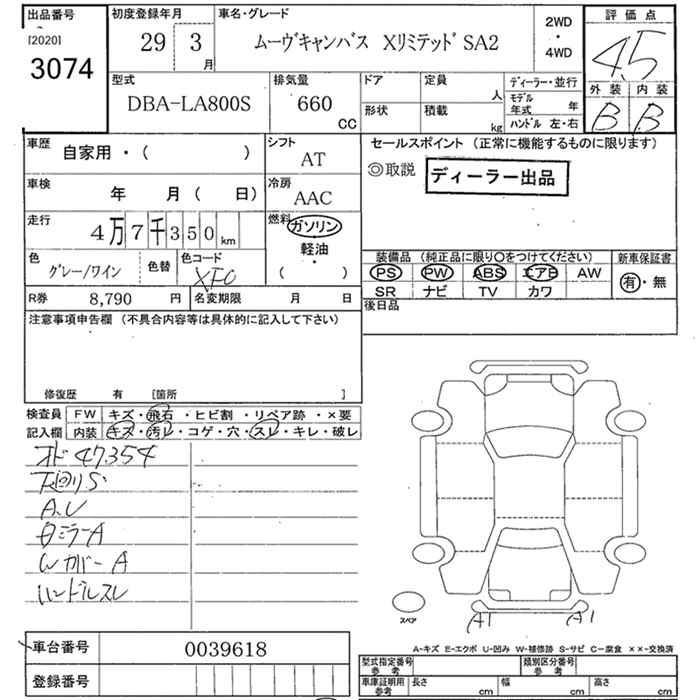 出品番号 初度登録年月 車名・グレード 2WD ・ 4WD 評価点
[2020]
3074 29 3 月 ムーヴキャンバス Xリミテッド SA2 4.5
型式 排気量 ドア 定員 人 ディーラー・並行 外装 内装
DBA-LA800S 660 CC 形状 積載 kg モデル年式 年 ハンドル 左・右 B B
車歴 自家用・( ) シフト AT セールスポイント (正常に機能するものに限ります)
◎取説 ディーラー出品
車検 年 月 ( 日) 冷房 AAC
走行 4万7千350km 燃料 ガソリン 軽油 ・ ( )
色 グレー/ワイン 色替 色コード XF0
装備品 (純正品に限り〇をつけてください) 新車保証書
PS PW ABS エアB AW 有・無
SR ナビ TV カワ
R券 8,790 円 名変期限 月 日 後日品
注意事項申告欄 (不具合内容等は具体的に記入して下さい)
修復歴 有 [箇所 ]
検査員 FW キズ・飛石・ヒビ割・リペア跡・×要
記入欄 内装 キズ・汚レ・コゲ・穴・スレ・キレ・破レ
オド47354
下回りS
A.U
Wカバー A
ハンドルスレ
スペア A1 A1
車台番号 0039618
登録番号
A-キズ E-エクボ U-凹み W-補修跡 S-サビ C-腐食 ××-交換済
型式指定番号 参考 類別区分番号 参考
車庫証明用 参考 長さ cm 幅 cm 高さ cm